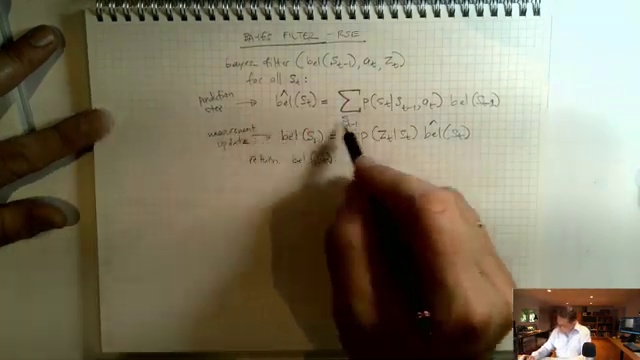 BAYES FILTER - RSE
bayes filter (bel(s_{t-1}), a_t, z_t)
for all s_t:
prediction step → b̂el(s_t) = ∑_{s_{t-1}} p(s_t | s_{t-1}, a_t) bel(s_{t-1})
measurement update → bel(s_t) = p(z_t | s_t) b̂el(s_t)
return bel